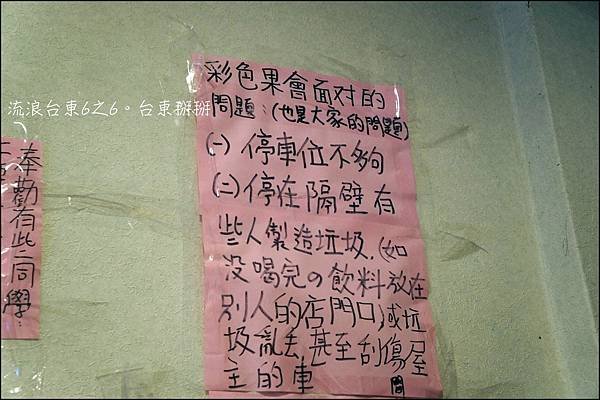 彩色果會面对的
問題：(也是大家的問題)
(一) 停車位不夠
(二) 停在隔壁有
些人製造垃圾. (如
没喝完の飲料放在
別人的店門口)或垃
圾亂丟, 甚至刮傷屋
主的車
奉勸有些同學：
流浪台東6之6。台東掰掰